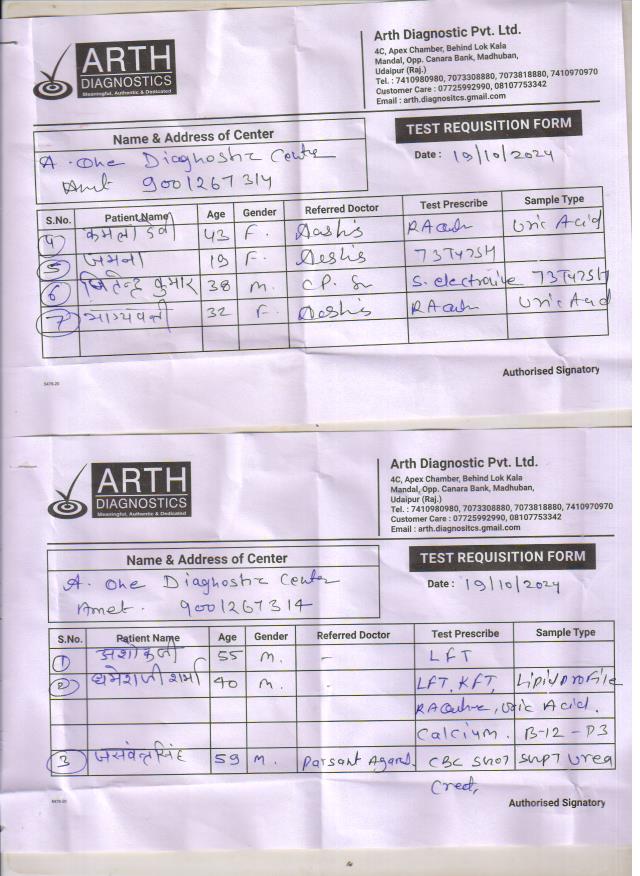 ARTH
DIAGNOSTICS
Meaningful, Authentic & Dedicated
Arth Diagnostic Pvt. Ltd.
4C, Apex Chamber, Behind Lok Kala
Mandal, Opp. Canara Bank, Madhuban,
Udaipur (Raj.)
Tel. : 7410980980, 7073308880, 7073818880, 7410970970
Customer Care : 07725992990, 08107753342
Email : arth.diagnositcs.gmail.com
Name & Address of Center
TEST REQUISITION FORM
A. One Diagnostic Center
Amet 9001267314
Date : 19/10/2024
S.No. Patient Name Age Gender Referred Doctor Test Prescribe Sample Type
4 कमला देवी 43 F. RA Uric Acid
5 जमना 19 F. T3T4TSH
6 जितेन्द्र कुमार 38 M. CP. S. T3T4TSH
7 भाग्यवन्ती 32 F. RA Uric Acid
Authorised Signatory
5476-20
ARTH
DIAGNOSTICS
Meaningful, Authentic & Dedicated
Arth Diagnostic Pvt. Ltd.
4C, Apex Chamber, Behind Lok Kala
Mandal, Opp. Canara Bank, Madhuban,
Udaipur (Raj.)
Tel. : 7410980980, 7073308880, 7073818880, 7410970970
Customer Care : 07725992990, 08107753342
Email : arth.diagnositcs.gmail.com
Name & Address of Center
TEST REQUISITION FORM
A. One Diagnostic Center
Amet. 9001267314
Date : 19/10/2024
S.No. Patient Name Age Gender Referred Doctor Test Prescribe Sample Type
1 अशोक जी 55 M. - LFT
2 धर्मेशजी शर्मा 40 M. - LFT, KFT, Lipid Profile
Uric Acid.
Calcium. B-12 - D3
3 जसवन्तसिंह 59 M. CBC SGOT SGPT Urea
Creat,
5476-20
Authorised Signatory